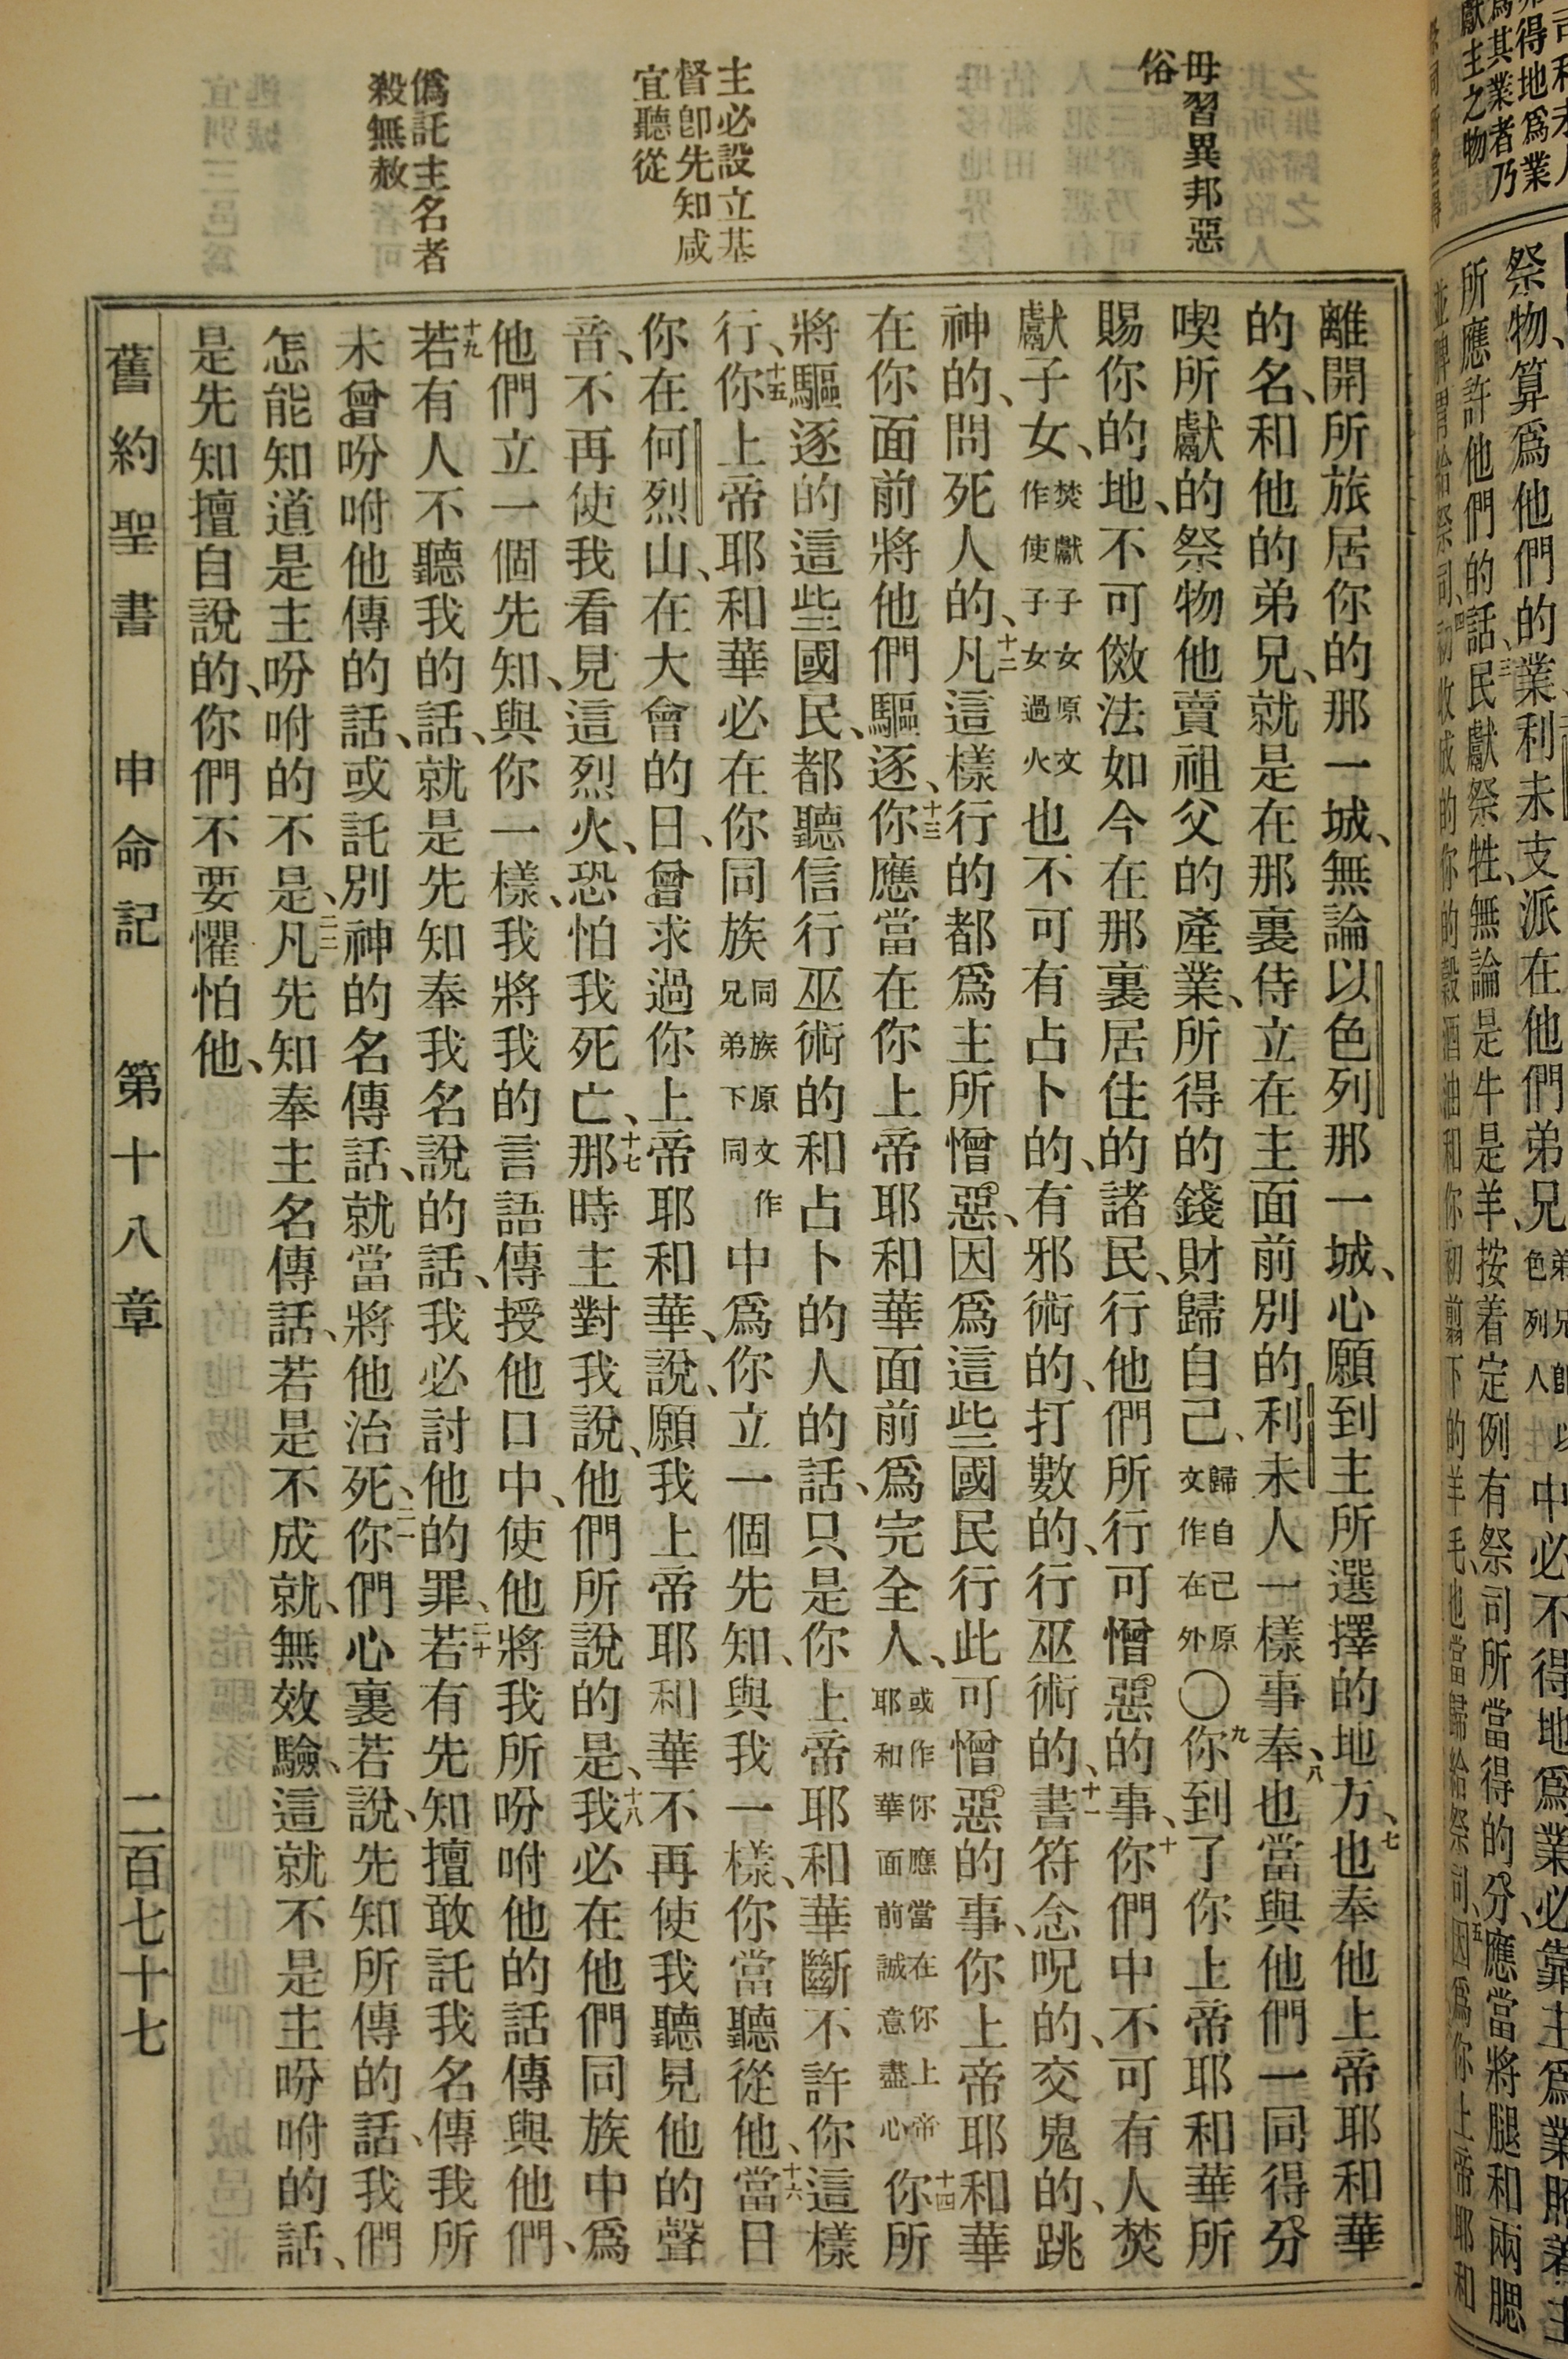 毋習異邦惡
俗
主必設立基
督卽先知咸
宜聽從
僞託主名者
殺無赦
離開所旅居你的那一城、無論以色列那一城、心願到主所選擇的地方、七也奉他上帝耶和華
的名、和他的弟兄、就是在那裏侍立在主面前別的利未人一樣事奉、八也當與他們一同得分
喫所獻的祭物他賣祖父的產業、所得的錢財歸自己、歸自己原文作在外〇九你到了你上帝耶和華所
賜你的地、不可傚法如今在那裏居住的諸民、行他們所行可憎惡的事、十你們中不可有人焚
獻子女、焚獻子女原文作使子女過火也不可有占卜的、有邪術的、打數的、行巫術的、十一書符念呪的、交鬼的、跳
神的、問死人的、十二凡這樣行的都爲主所憎惡、因爲這些國民行此可憎惡的事、你上帝耶和華
在你面前將他們驅逐、十三你應當在你上帝耶和華面前爲完全人、或作你應當在你上帝耶和華面前誠意盡心十四你所
將驅逐的這些國民、都聽信行巫術的和占卜的人的話、只是你上帝耶和華斷不許你這樣
行、十五你上帝耶和華必在你同族同族原文作兄弟下同中爲你立一個先知、與我一樣、你當聽從他、十六當日
你在何烈山、在大會的日、曾求過你上帝耶和華、說、願我上帝耶和華不再使我聽見他的聲
音、不再使我看見這烈火、恐怕我死亡、十七那時主對我說、他們所說的是、十八我必在他們同族中爲
他們立一個先知、與你一樣、我將我的言語傳授他口中、使他將我所吩咐他的話傳與他們、
十九若有人不聽我的話、就是先知奉我名說的話、我必討他的罪、二十若有先知擅敢託我名傳我所
未曾吩咐他傳的話、或託別神的名傳話、就當將他治死、二一你們心裏若說、先知所傳的話、我們
怎能知道是主吩咐的不是、二二凡先知奉主名傳話、若是不成就、無效驗、這就不是主吩咐的話、
是先知擅自說的、你們不要懼怕他、
舊約聖書　申命記　第十八章　二百七十七